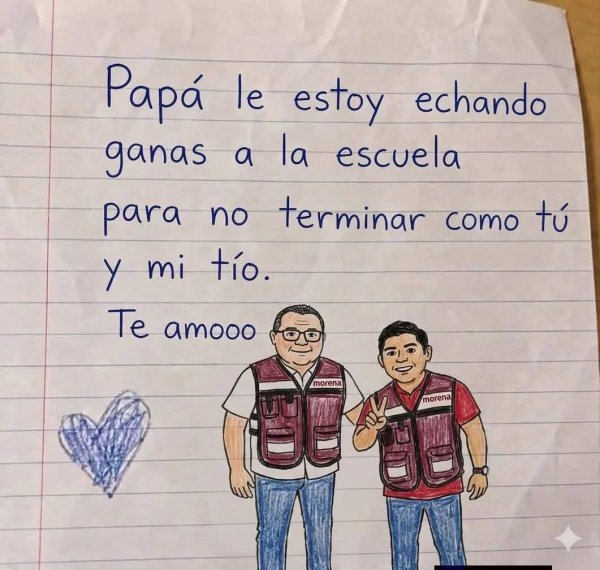 Papá le estoy echando
ganas a la escuela
para no terminar como tú
y mi tío.
Te amooo
morena
morena